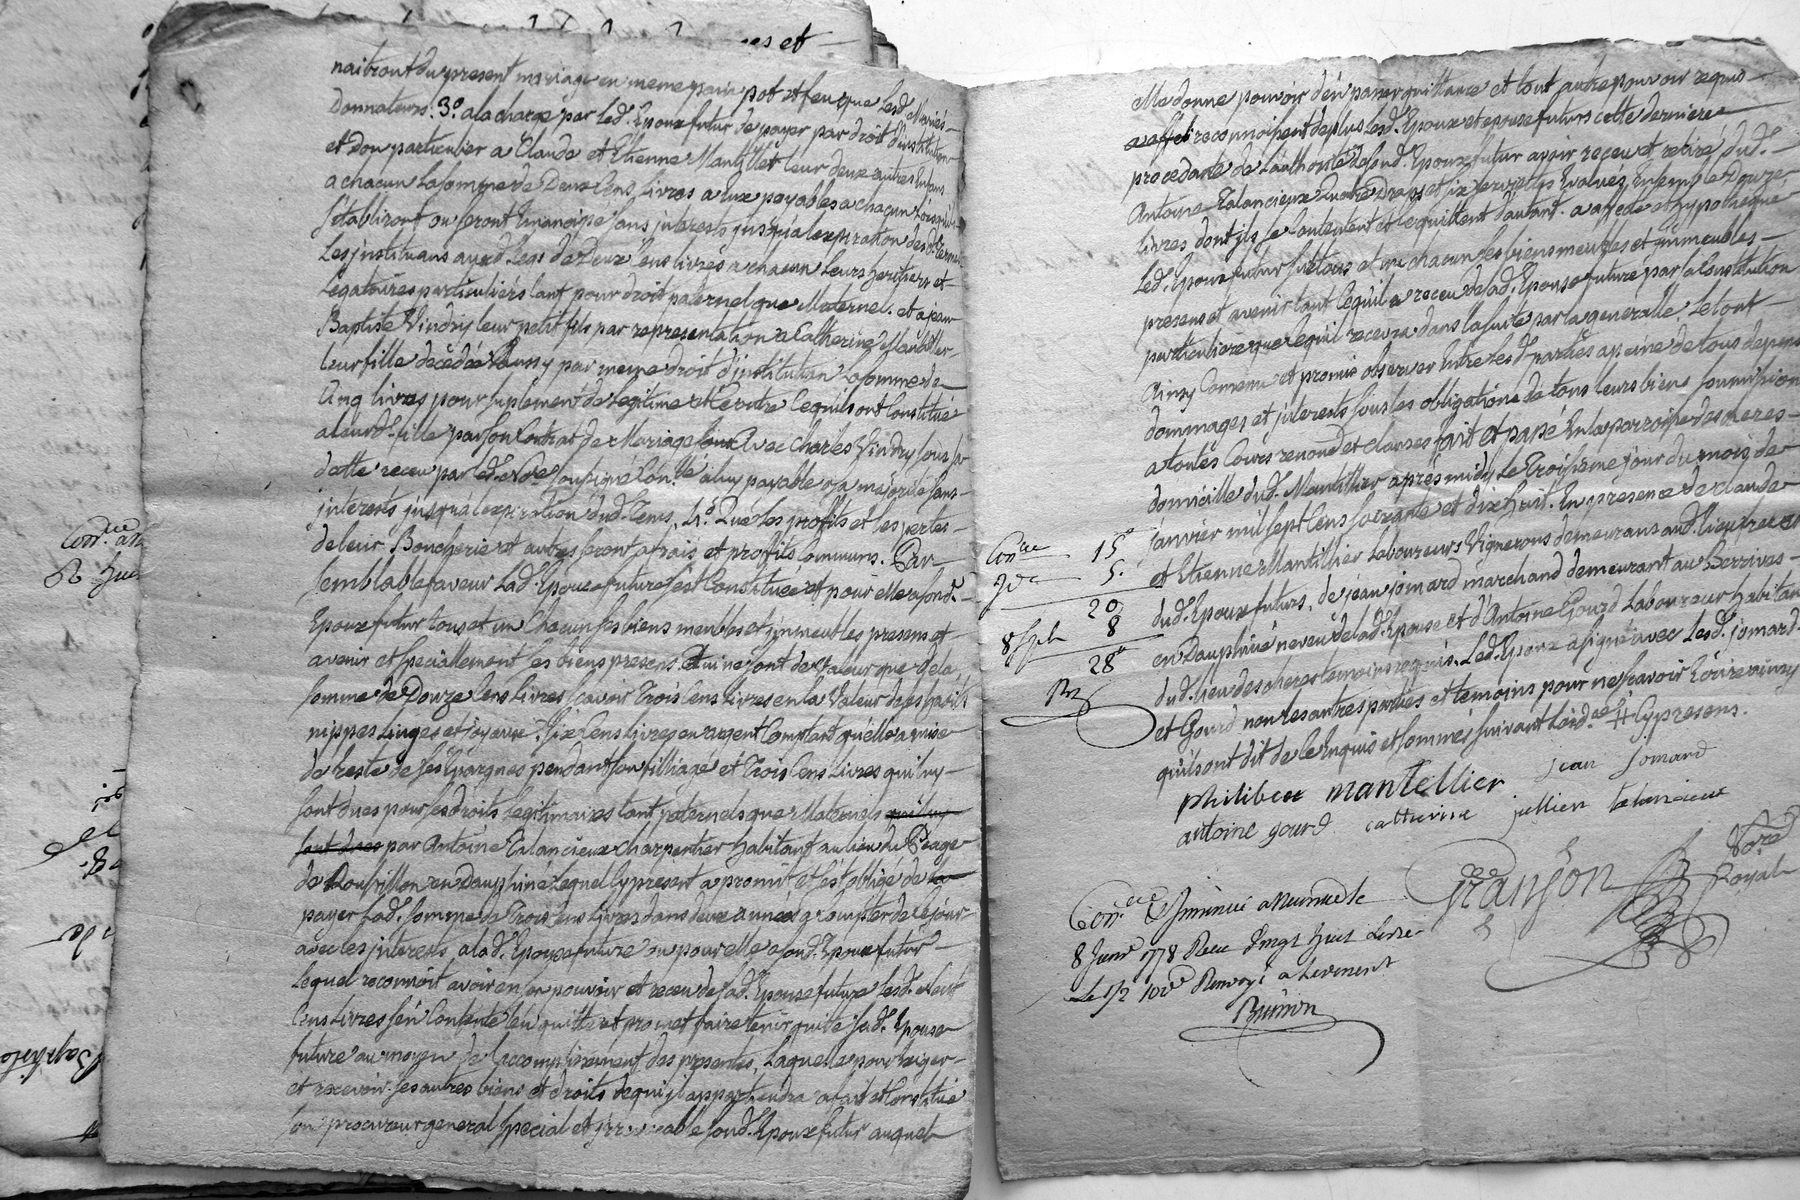 naitront du present mariage en meme pain pot et feu que lesd. Mariés
Donnateurs. 3.o a la charge par led. Epoux futur de payer par droit d'institution
et don particulier a Claude et Etienne Mantillier leur deux autres Enfans
a chacun la somme de Deux Cens livres a eux payables a chacun Lors qu'ils
s'établiront ou seront Emancipé sans interests jusqu'a l'expiration desd. termes
Les instituans aud. Legs de Deux Cens livres a chacun Leurs heritiers et
Legataires particuliers tant pour droit paternel que Maternel. et a jean
Baptiste Vindry leur petit fils par representation a Catherine Mantillier
leur fille décédée aussy par meme droit d'institution la somme de
Cinq livres pour suplement de legitime et Ce outre Ce qu'ils ont Constitué
a leurd. fille par son Contrat de Mariage avec Charles Vindry sous sa
datte receu par led. No.re soussigné a luy payable a sa majorité sans
interests jusqu'a l'expiration dud. tems, 4.o Que les profits et les pertes
de leur Boucherie et autres seront a frais et proffits Communs. Par
semblable faveur Lad. Epouse future s'est Constituée et pour elle a sond.
Epoux futur tous et un Chacun ses biens meubles et immeubles presens et
avenir et speciallement ses biens presens qui ne sont de valeur que de la
somme de Douze Cens livres scavoir Trois Cens livres en la valeur de ses habits
nippes linges et joyaux. Six Cens livres en argent Comptant qu'elle a mise
de reste de ses Epargnes pendant son filliage et Trois Cens livres qui luy
sont dues pour ses droits legitimaires tant paternels que Maternels qui luy
sont dues par Antoine Talancieux charpentier habitant au lieu du Peage
de Roussillon en Dauphiné lequel Cy present a promit et s'est obligé de la
payer Lad. somme de Trois Cens livres dans deux années a Compter de ce jour
avec les interests, a lad. Epouse future ou pour elle a sond. Epoux futur
lequel reconnoit avoir en son pouvoir et receu de sad. Epouse future lesd. Neuf
Cens livres s'en Contente l'en quitte et promet faire tenir quitte sad. Epouse
future au moyen de l'accomplissement des presentes, Laquelle pour exiger
et recevoir ses autres biens et droits de qui il appartiendra a fait et Constitué
son procureur general special et irrevocable sond. Epoux futur auquel
elle donne pouvoir d'en passer quittance et tout autre pouvoir requis
a effet reconnoissent de plus lesd. Epoux et epouse futurs cette derniere
procedante de l'authorité de sond. Epoux futur avoir receu et retiré dud.
Antoine Talancieux quatre Draps et six serviettes Evalués Ensemble Douze
livres dont ils se Contentent et le quittent d'autant. a affecté et hypotheque
Led. Epoux futur sur tous et un chacun ses biens meubles et immeubles
presens et avenir tant Ce qu'il a receu de lad. Epouse future par la Constitution
particuliere que Ce qu'il recevra dans la suite par la generalle, Le tout
Ainsy Convenu et promis observer Entre lesd. parties a peine de tous depens
dommages et interests sous les obligations de tous leurs biens soumission
a toutes Cours renond. et clauses fait et passé En la parroisse des heres
domicille dud. Mantillier apres midy Le Troisieme jour du mois de
Janvier mil sept Cens soixante et dix huit. En presence de claude
et Etienne Mantillier Laboureurs Vignerons demeurans aud. lieu freres
dud. Epoux futurs, de jean jomard marchand demeurant au Serrives
en Dauphiné neveu de lad. Epouse et d'Antoine Gourd Laboureur habitan
dud. lieu des heres temoins requis. Led. Epoux a signé avec lesd. jomard
et Gourd non les autres parties et temoins pour ne scavoir Ecrire ainsy
qu'ils ont dit de ce Enquis et sommés suivant L'ord.ce Cy presens.
philibert mantellier jean jomard
antoine gourd catherine jullien talancieux
Granjon No.re Royal
Con.ce 15
Jd. 5.
20
8 s. p. l. 8
28
Con.lé & Jnsinué a
8 Janv. 1778 Reçu Vingt huit Livre
Renvoyé
Con.ce
Baptiste